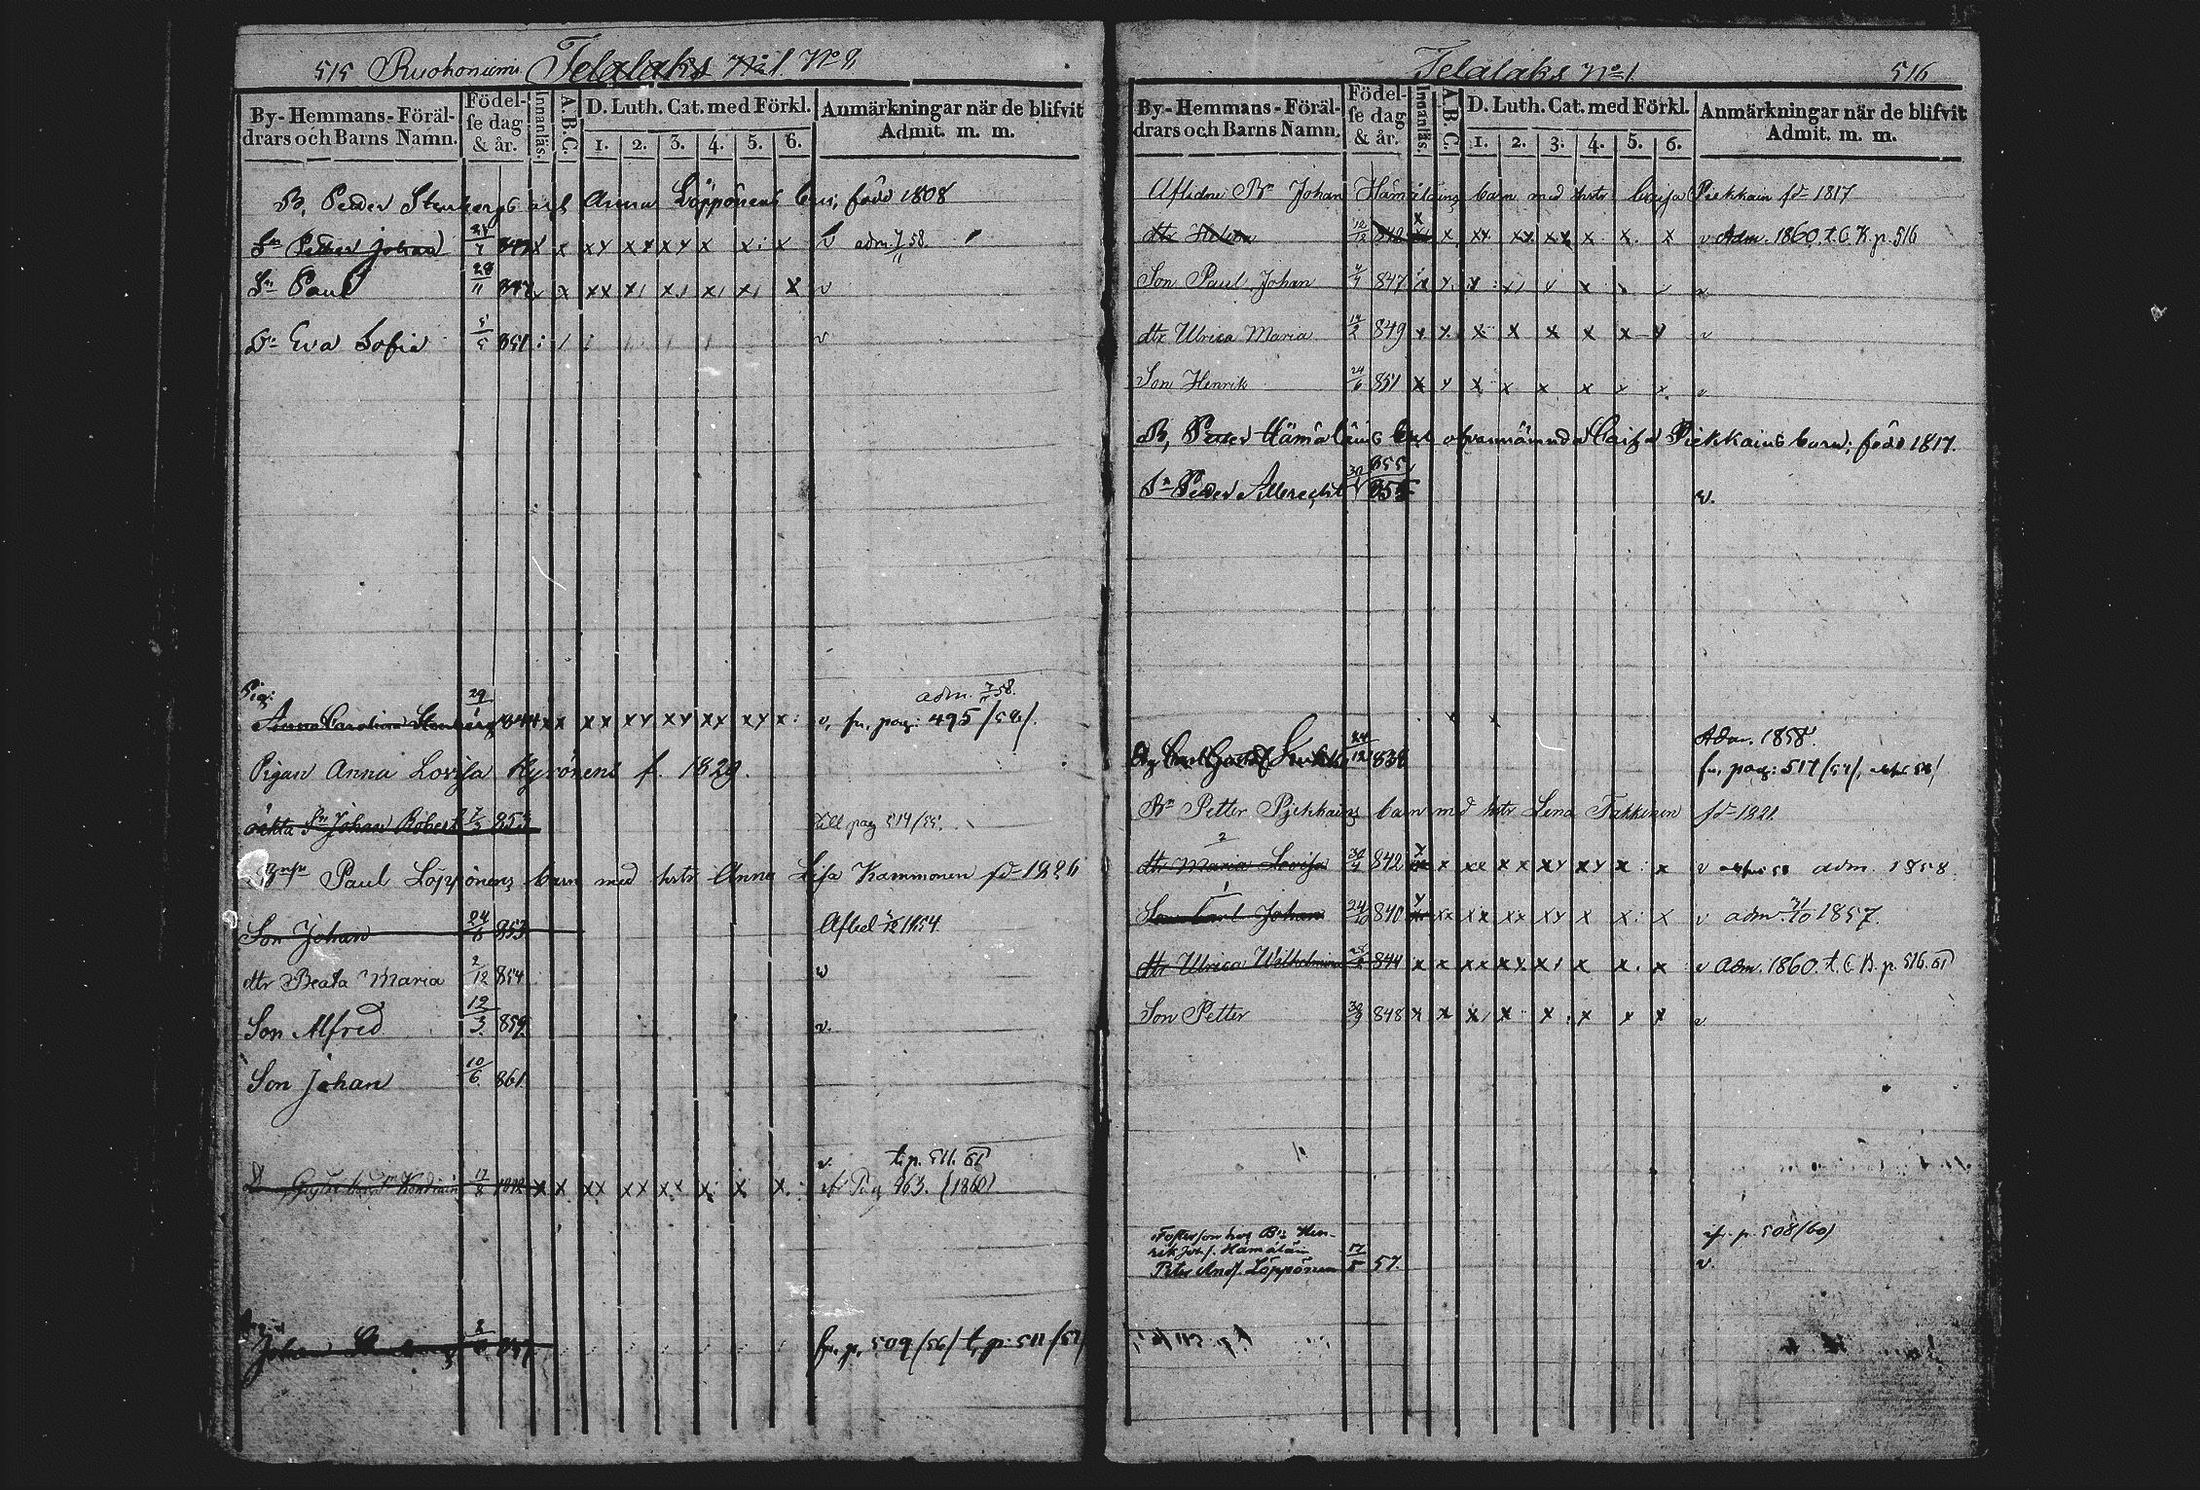 515 Ruohoniemi Telalaks No 1 No 8
By-Hemmans-Föräl-
drars och Barns Namn.
Födel-
se dag
& år.
Innanläs.
A.B.C.
D. Luth. Cat. med Förkl.
1. 2. 3. 4. 5. 6.
Anmärkningar när de blifvit
Admit. m. m.
B, Peder Stenbergs och Anna Löppönens barn, född 1808
Sn Petter Johan 847 x x xx xx xx x x x v adm. 7/11 58.
Sn Paul 28/11 847 x x xx x x x x x v
Dr Eva Sofia 5/5 851 v
Pig: adm. 58.
Anna Carolina Stenberg 29/1 844 x x xx xx xx xx xx x v, fr. pag: 495/58/.
Pigan Anna Lovisa Hyvönens f. 1829.
oäkta Sn Johan Robert 855 till pag 514/55.
Paul Löppönens barn med hstr Anna Lisa Kammonen fd 1826
Son Johan 24/6 853 Afled 1854.
dtr Beata Maria 2/12 854 v
Son Alfred 12/3 859 v.
Son Johan 10/6 861.
v. t. p. 511. 61
17/8 x x xx xx xx x x x Pag 463. (1860)
Johan 857 fr. p. 509/56/ t. p. 511/57/
Telalaks No 1 516
By-Hemmans-Föräl-
drars och Barns Namn.
Födel-
se dag
& år.
Innanläs.
A.B.C.
D. Luth. Cat. med Förkl.
1. 2. 3. 4. 5. 6.
Anmärkningar när de blifvit
Admit. m. m.
Aflidne Bn Johan Hämäläins barn med hstr Caisa Piekkain fd 1817
dtr Helena 12/12 842 x x xx xx xx x x x v Adm. 1860. t. C. B. p. 516
Son Paul Johan 4/4 847 x x x x v
dtr Ulrica Maria 14/2 849 x x x x x x x x v
Son Henrik 24/6 851 x x x x x x x x v
B, Petter Hämäläins och ofvannämnda Caisa Piekkains barn; född 1817.
Sn Peder Albrecht 30/1 855 v.
Adm. 1858.
Carl Gustaf 24/12 838 fr. pag: 517/57/,
Bn Petter Piekkains barn med hstr Lena Takkinen fd 1821.
2
dtr Maria Lovisa 30/4 842 x x xx xx xx xx x x v adm. 1858
1
Son Carl Johan 24/10 840 x xx xx xx xx x x x v adm. 1857.
dtr Ulrica Wilhelmina 844 x x xx xx x x x x v Adm. 1860. t. C. B. p. 516. 61
Son Petter 30/9 848 x x x x x x x x v
Fosterson hos Bn Hen-
rik Joh. s. Hämäläin
Peter And. Löppönen 17/8 57. v.
fr. p. 508/60)